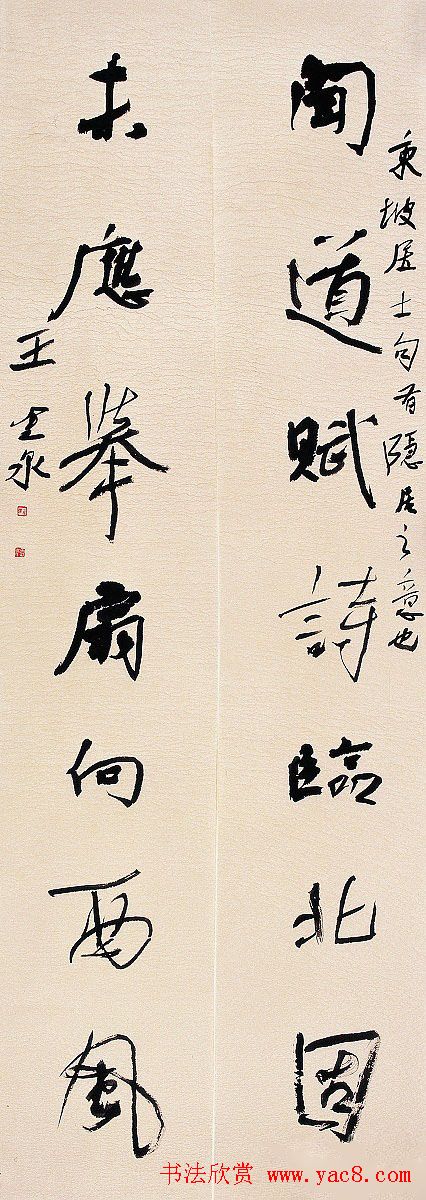 東坡居士句有隱居之意也
聞道賦詩臨北固
未應舉扇向西風
王泉
书法欣赏 www.yac8.com